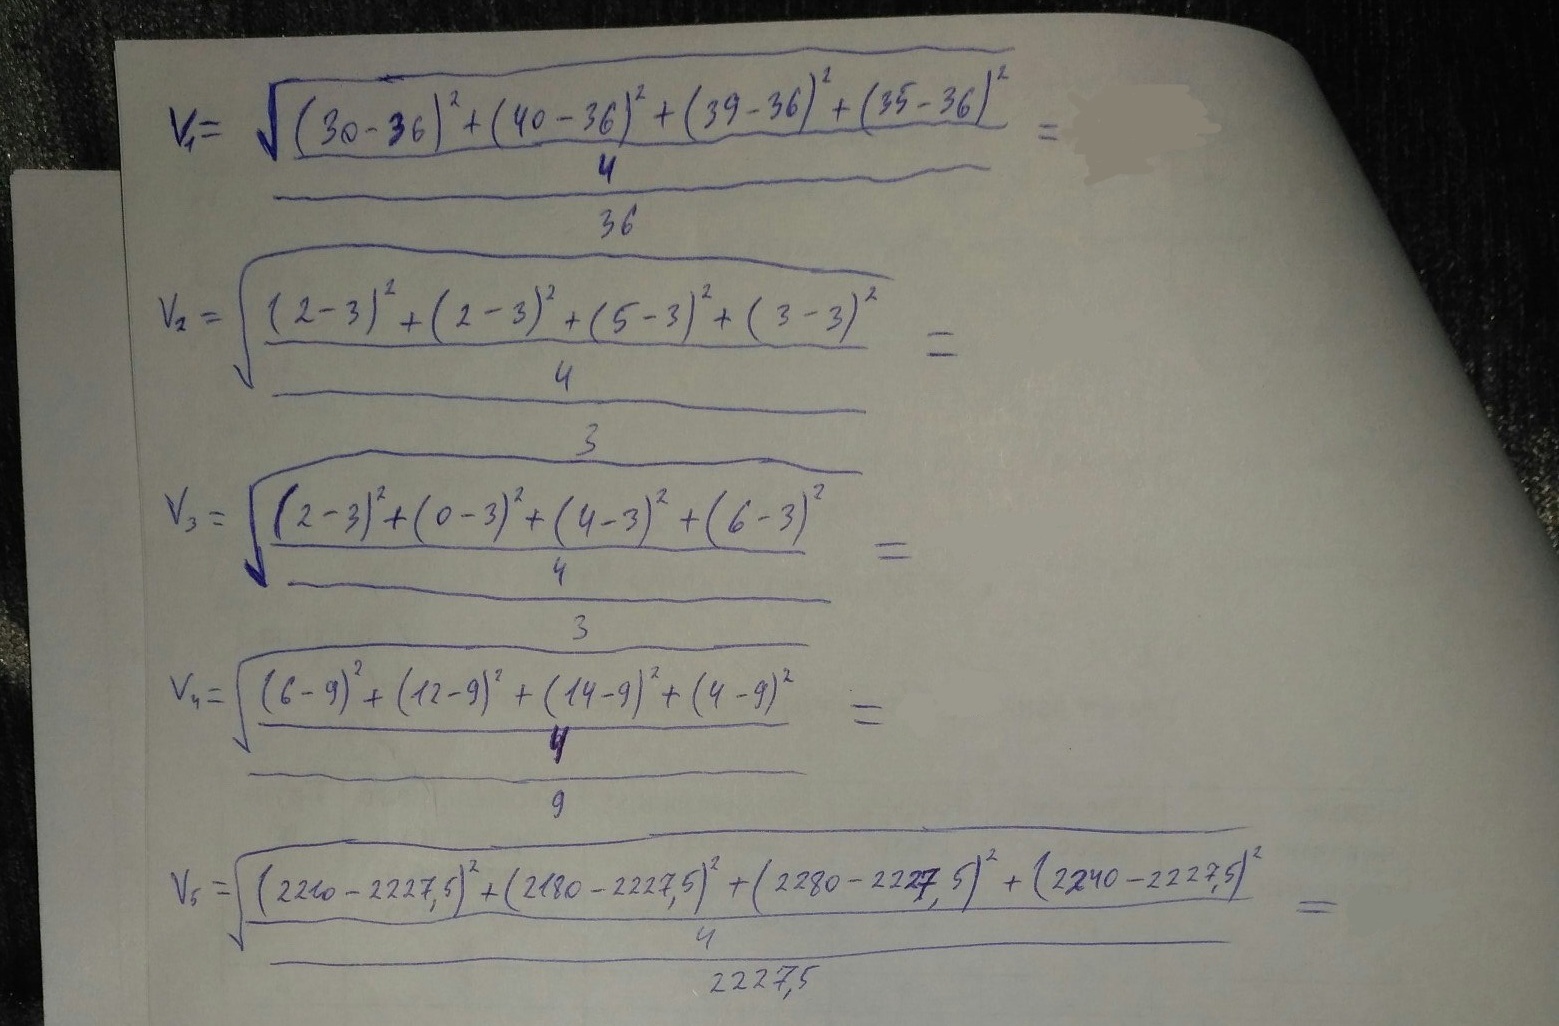 V₁ = √((30-36)²+(40-36)²+(39-36)²+(35-36)²
4
36 =
V₂ = √((2-3)²+(2-3)²+(5-3)²+(3-3)²
4
3 =
V₃ = √((2-3)²+(0-3)²+(4-3)²+(6-3)²
4
3 =
V₄ = √((6-9)²+(12-9)²+(14-9)²+(4-9)²
4
9 =
V₅ = √((2210-2227,5)²+(2180-2227,5)²+(2280-2227,5)²+(2240-2227,5)²
4
2227,5 =